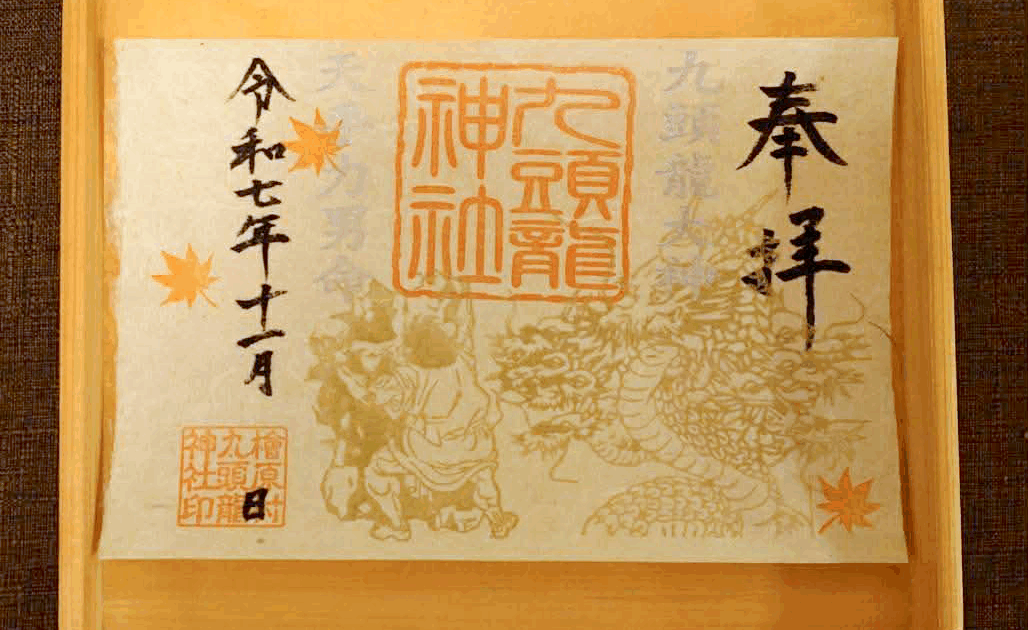 奉拝
九頭龍大神
九頭龍
神社
天手力男命
令和七年十一月
日
檜原村
九頭龍
神社印